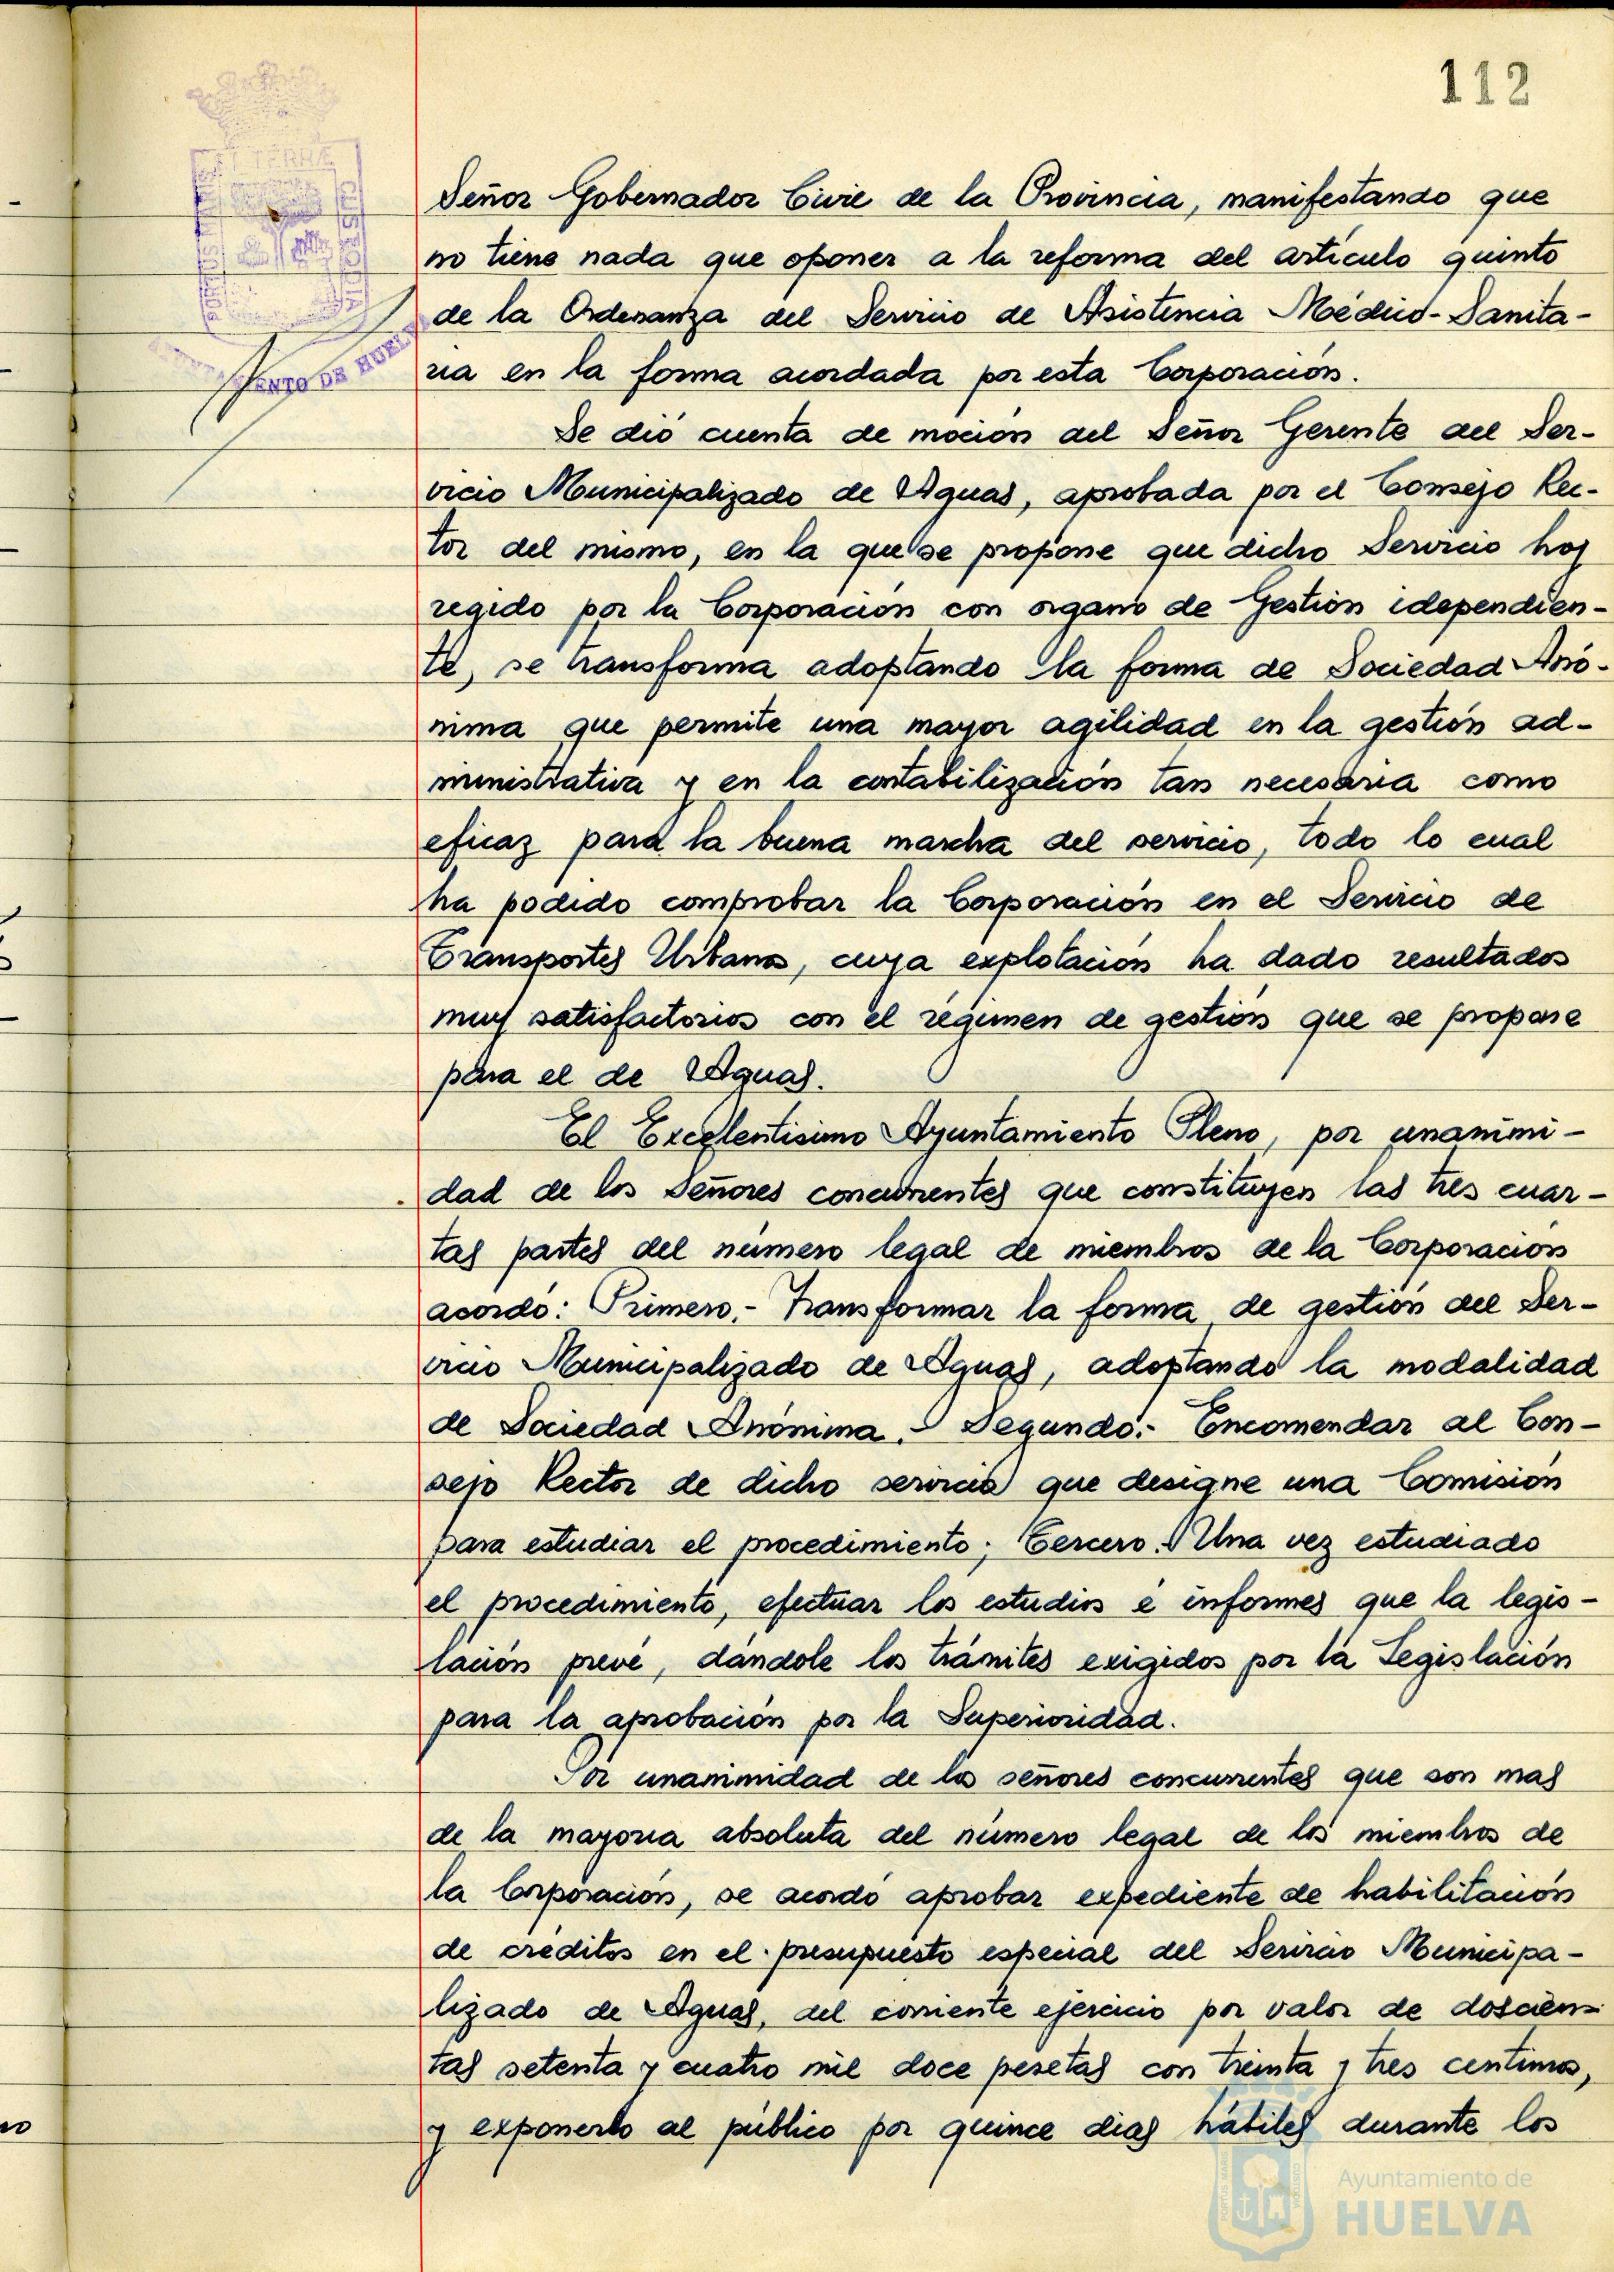 112
PORTUS MARIS ET TERRÆ CUSTODIA
AYUNTAMIENTO DE HUELVA
Señor Gobernador Civil de la Provincia, manifestando que
no tiene nada que oponer a la reforma del artículo quinto
de la Ordenanza del Servicio de Asistencia Médico-Sanita-
ria en la forma acordada por esta Corporación.
Se dió cuenta de moción del Señor Gerente del Ser-
vicio Municipalizado de Aguas, aprobada por el Consejo Rec-
tor del mismo, en la que se propone que dicho Servicio hoy
regido por la Corporación con organo de Gestión idependien-
te, se transforma adoptando la forma de Sociedad Anó-
nima que permite una mayor agilidad en la gestión ad-
ministrativa y en la contabilización tan necesaria como
eficaz para la buena marcha del servicio, todo lo cual
ha podido comprobar la Corporación en el Servicio de
Transportes Urbanos, cuya explotación ha dado resultados
muy satisfactorios con el régimen de gestión que se propone
para el de Aguas.
El Excelentísimo Ayuntamiento Pleno, por unanimi-
dad de los Señores concurrentes que constituyen las tres cuar-
tas partes del número legal de miembros de la Corporación
acordó: Primero.- Transformar la forma de gestión del Ser-
vicio Municipalizado de Aguas, adoptando la modalidad
de Sociedad Anónima.- Segundo.- Encomendar al Con-
sejo Rector de dicho servicio que designe una Comisión
para estudiar el procedimiento; Tercero. Una vez estudiado
el procedimiento, efectuar los estudios é informes que la legis-
lación prevé, dándole los trámites exigidos por la Legislación
para la aprobación por la Superioridad.
Por unanimidad de los señores concurrentes que son mas
de la mayoria absoluta del número legal de los miembros de
la Corporación, se acordó aprobar expediente de habilitación
de créditos en el presupuesto especial del Servicio Municipa-
lizado de Aguas, del corriente ejercicio por valor de doscien-
tas setenta y cuatro mil doce pesetas con treinta y tres centimos,
y exponerlo al público por quince dias hábiles durante los
Ayuntamiento de
HUELVA